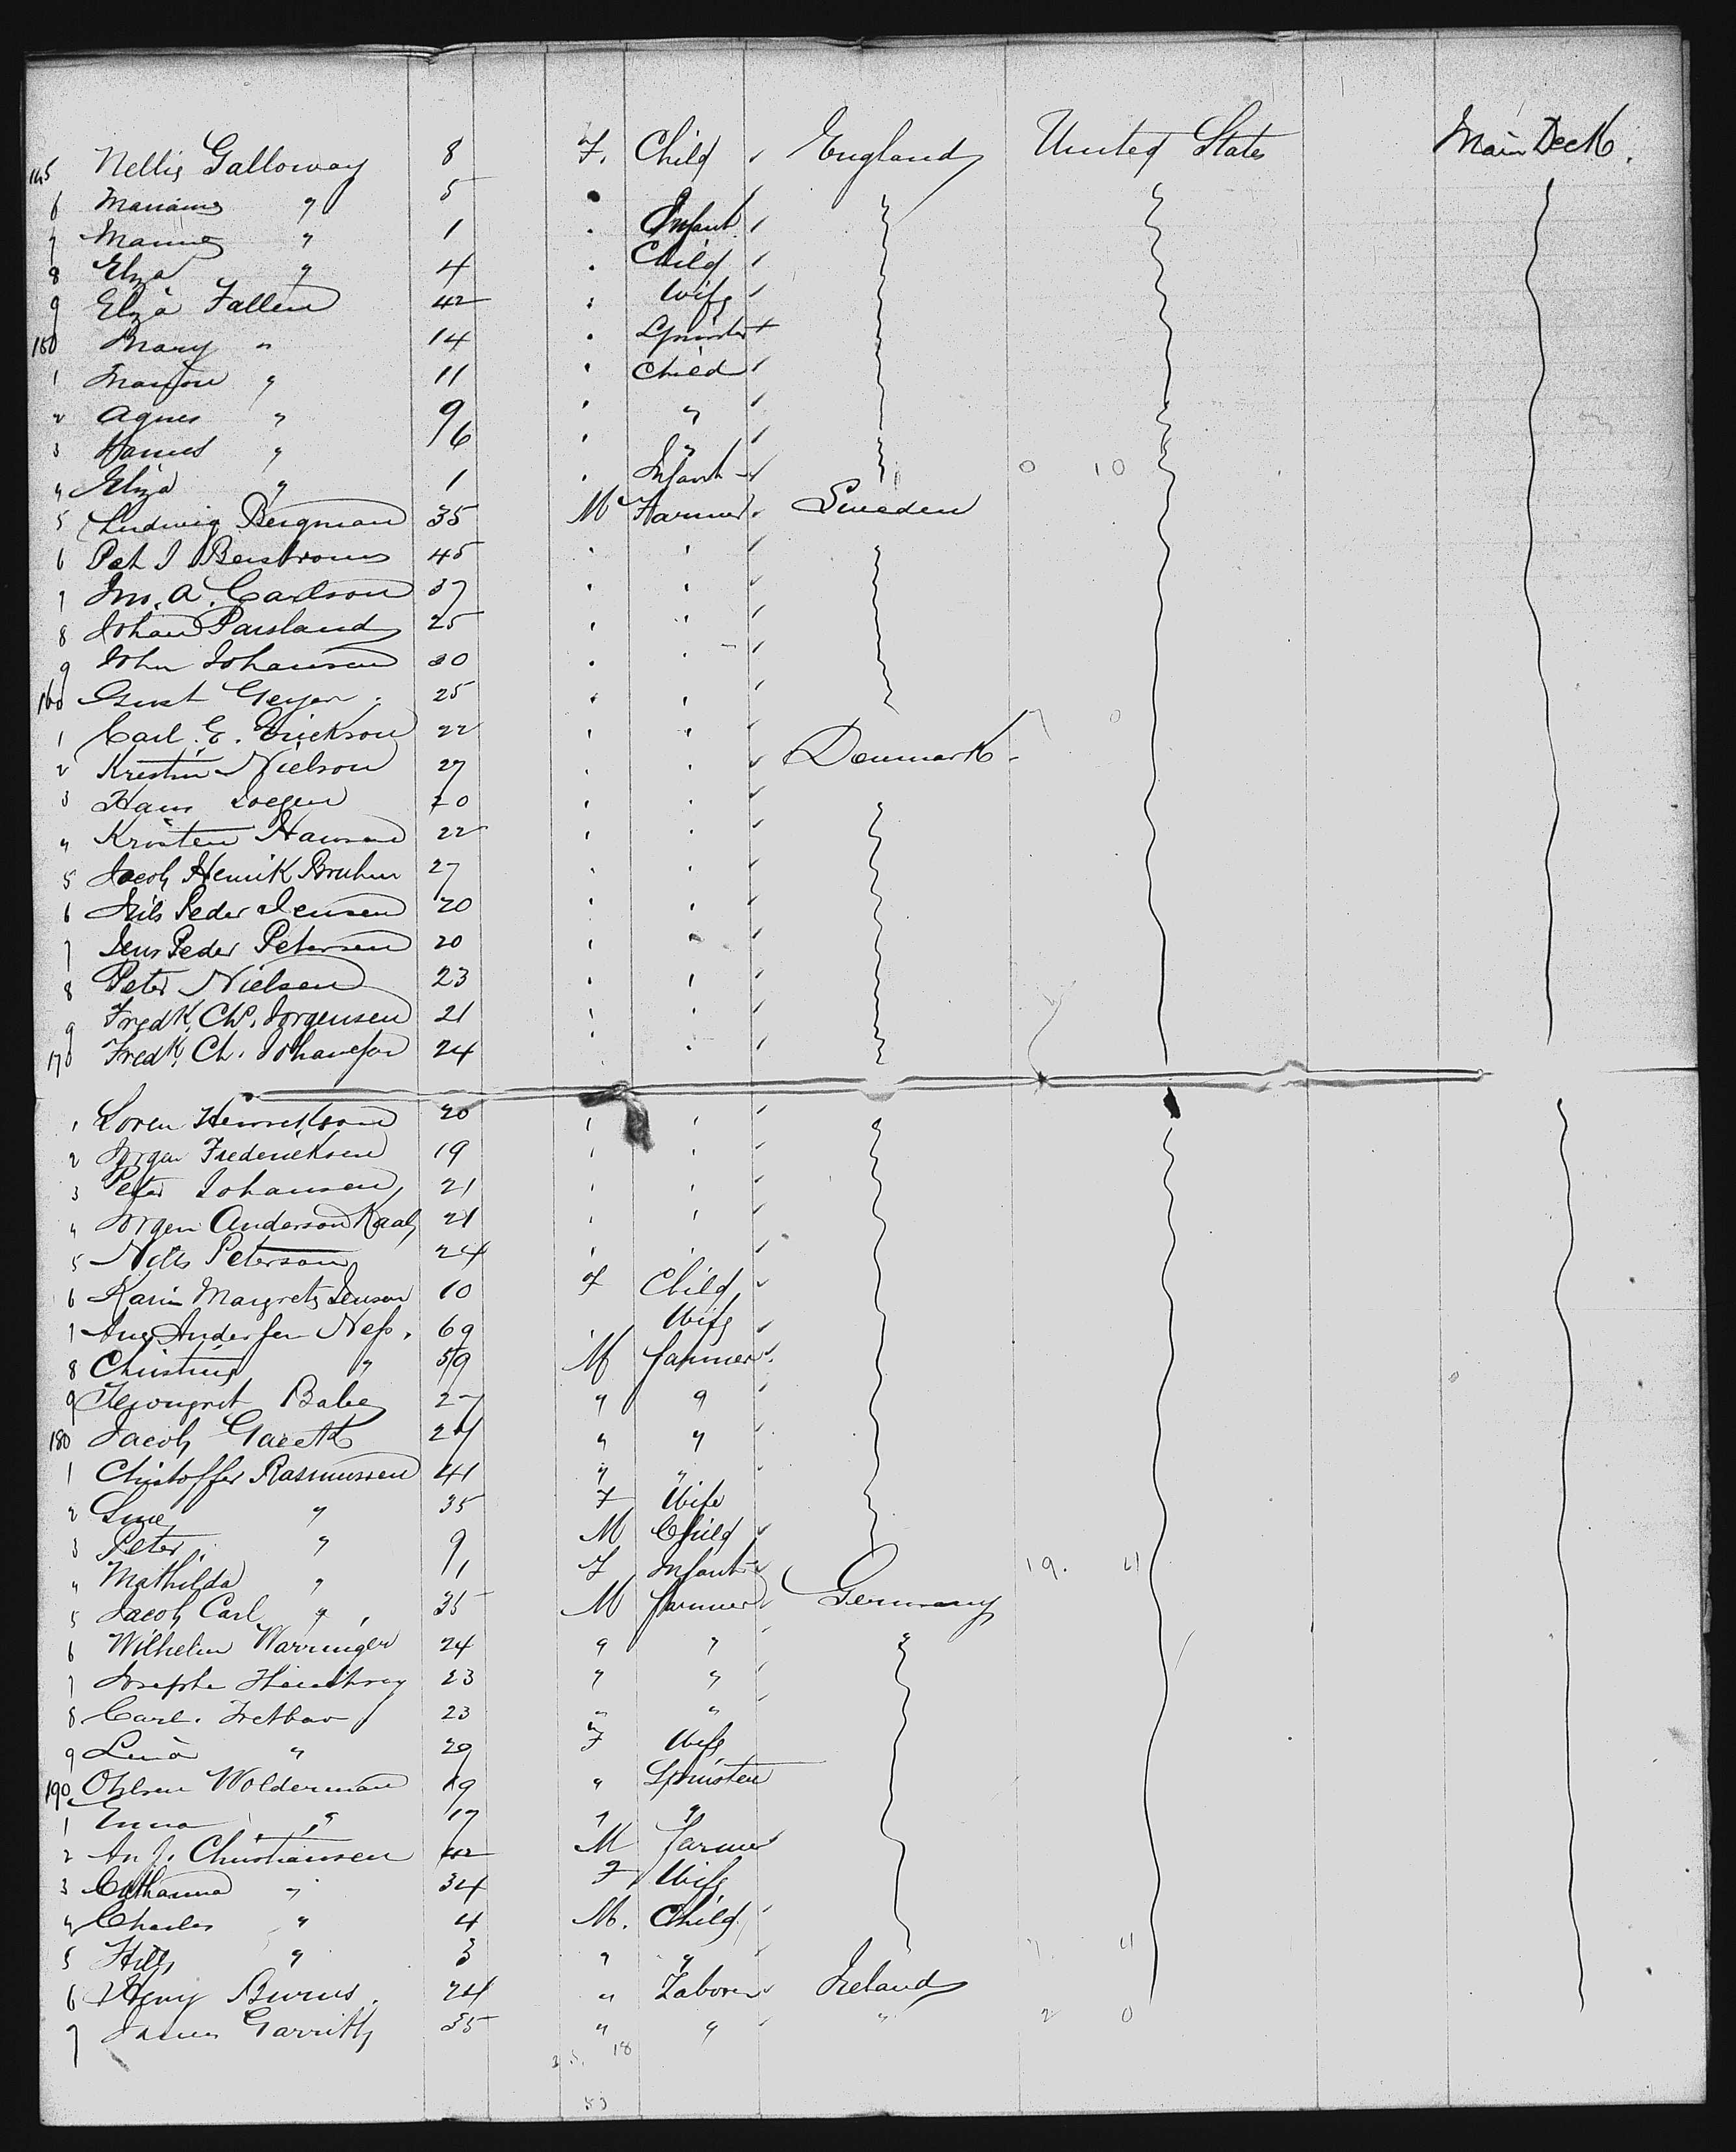 145 Nellis Galloway 8 F. Child England United States Main Deck.
6 " 5
7 " 1 Infant
8 Eliza " 4 Child
9 Eliza Fallen 42 Wife
150 Mary " 14 Spinster
1 Marion " 11 Child
2 Agnes " 9 "
3 " 6 "
4 Eliza " 1 Infant 0 10
5 Ludwig Bergman 35 M Farmer Sweden
6 Pet J Berstrom 45
7 Jno. A. Carlson 37
8 Johan Parsland 25
9 John Johansen 30
160 Gust Geyer 25
1 Carl. E. Erickson 22 7 0
2 Kristin Nielson 27 Denmark
3 Hans 20
4 Kristen Hansen 22
5 Jacob Henrik Bruhn 27
6 Nils Peder Jensen 20
7 Jens Peder Petersen 20
8 Peter Nielsen 23
9 Fredk. Ch. Jorgensen 21
170 Fredk. Ch. Johansen 24
1 Soren Henrikson 20
2 Jorgen Frederiksen 19
3 Peter Johansen 21
4 Jorgen Anderson Kaab 21
5 Nels Peterson 24
6 Karin Margreth Jenson 10 F Child
7 Ane Andersen Ness. 69 Wife
8 " 59 M farmer
9 Babe 27 " "
180 Jacob 24 " "
1 Christoffer Rasmussen 41 " "
2 Sine " 35 F Wife
3 Peter " 9 M Child
4 Mathilda " 1 F Infant 19. 4
5 Jacob Carl " 35 M farmer Germany
6 Wilhelm Warringer 24 " "
7 Josephe 23 " "
8 Carl. Fretbar 23 " "
9 Lina " 29 F Wife
190 Wolderman 19 " Spinster
1 Emma " 17 " "
2 An J. Christiansen 42 M farmer
3 Catharina " 34 F Wife
4 Charles " 4 M. Child
5 " 3 " " 7. 4
6 Henry Burns. 24 " Laborer Ireland
7 James Garritty 35 " " " 2 0
18
53